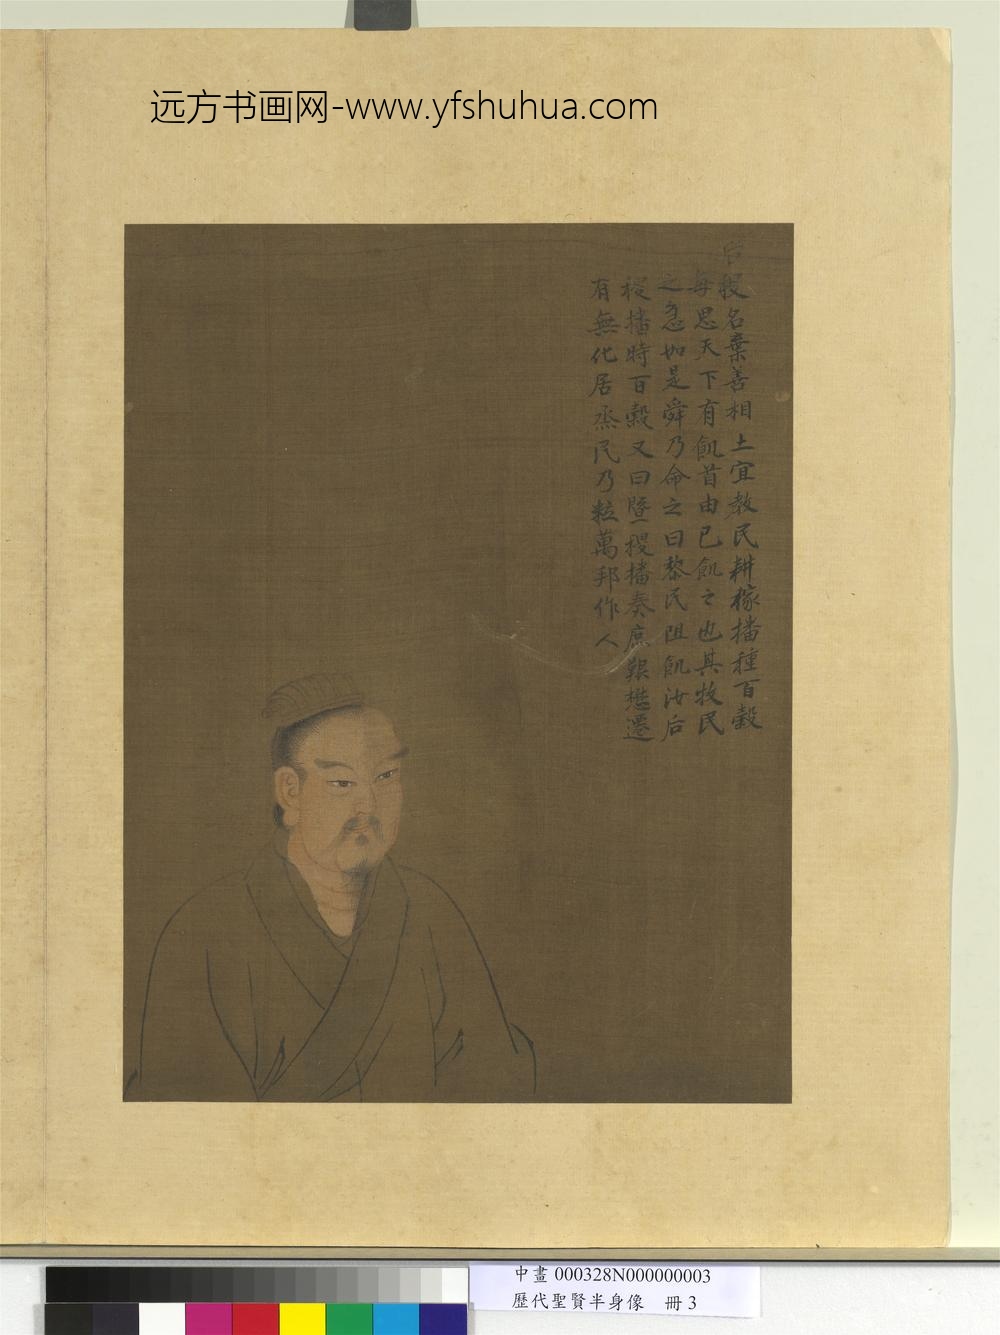 远方书画网-www.yfshuhua.com
后稷名棄善相土宜教民耕稼播種百穀
每思天下有飢首由已飢之也其牧民
之急如是舜乃命之曰黎民阻飢汝后
稷播時百穀又曰暨稷播奏庶艱懋遷
有無化居烝民乃粒萬邦作人
中畫 000328N000000003
歷代聖賢半身像 冊 3